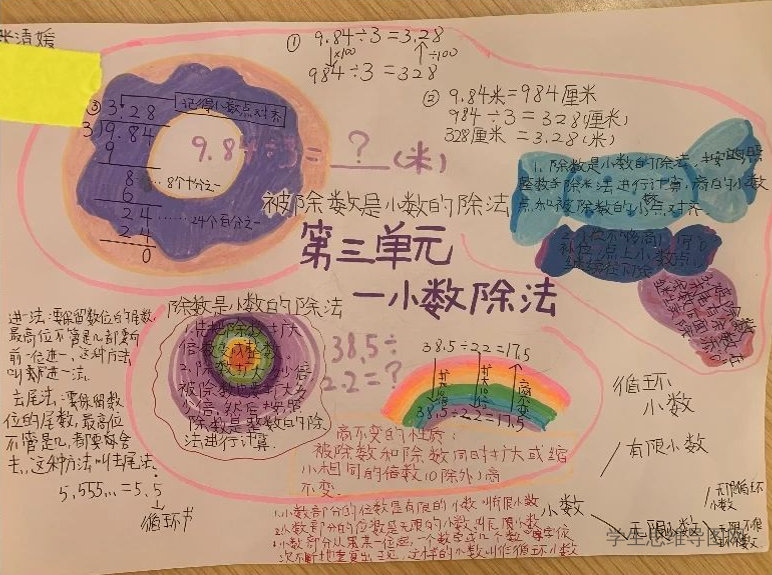 ① 9.84÷3=3.28
×100 ÷100
984÷3=328
② 9.84米=984厘米
984÷3=328(厘米)
328厘米=3.28(米)
③ 3.28
记得小数点对齐
3)9.84
9
8 ……8个十分之一
6
24 ……24个百分之一
24
0
9.84÷3=?(米)
被除数是小数的除法
1. 除数是小数的除法,
整数除法进行计算,商的小数
点和被除数的小数点对齐.
第三单元
—小数除法
除数是小数的除法
1.先把除数扩大
倍数变成整数.
被除数也要扩大
除数是整数的除
法进行计算.
38.5÷
2.2=?
38.5÷2.2=17.5
38.5÷2.2=17.5
商不变
商不变的性质:
被除数和除数同时扩大或缩
小相同的倍数(0除外)商
不变.
进一法:要保留数位的尾数,
最高位不管是几都要向
前一位进一,这种方法
叫进一法.
去尾法:要保留数
位的尾数,最高位
不管是几,都要舍
去,这种方法叫去尾法.
5.555...=5.5
循环节
循环
小数
有限小数
小数
无限小数
无限循环
小数
1.小数部分的位数是有限的小数叫有限小数
2.小数部分的位数是无限的小数叫无限小数
3.小数部分从某一位起,一个数字或几个数字依
次不断地重复出现,这样的小数叫作循环小数
学生思维导图网